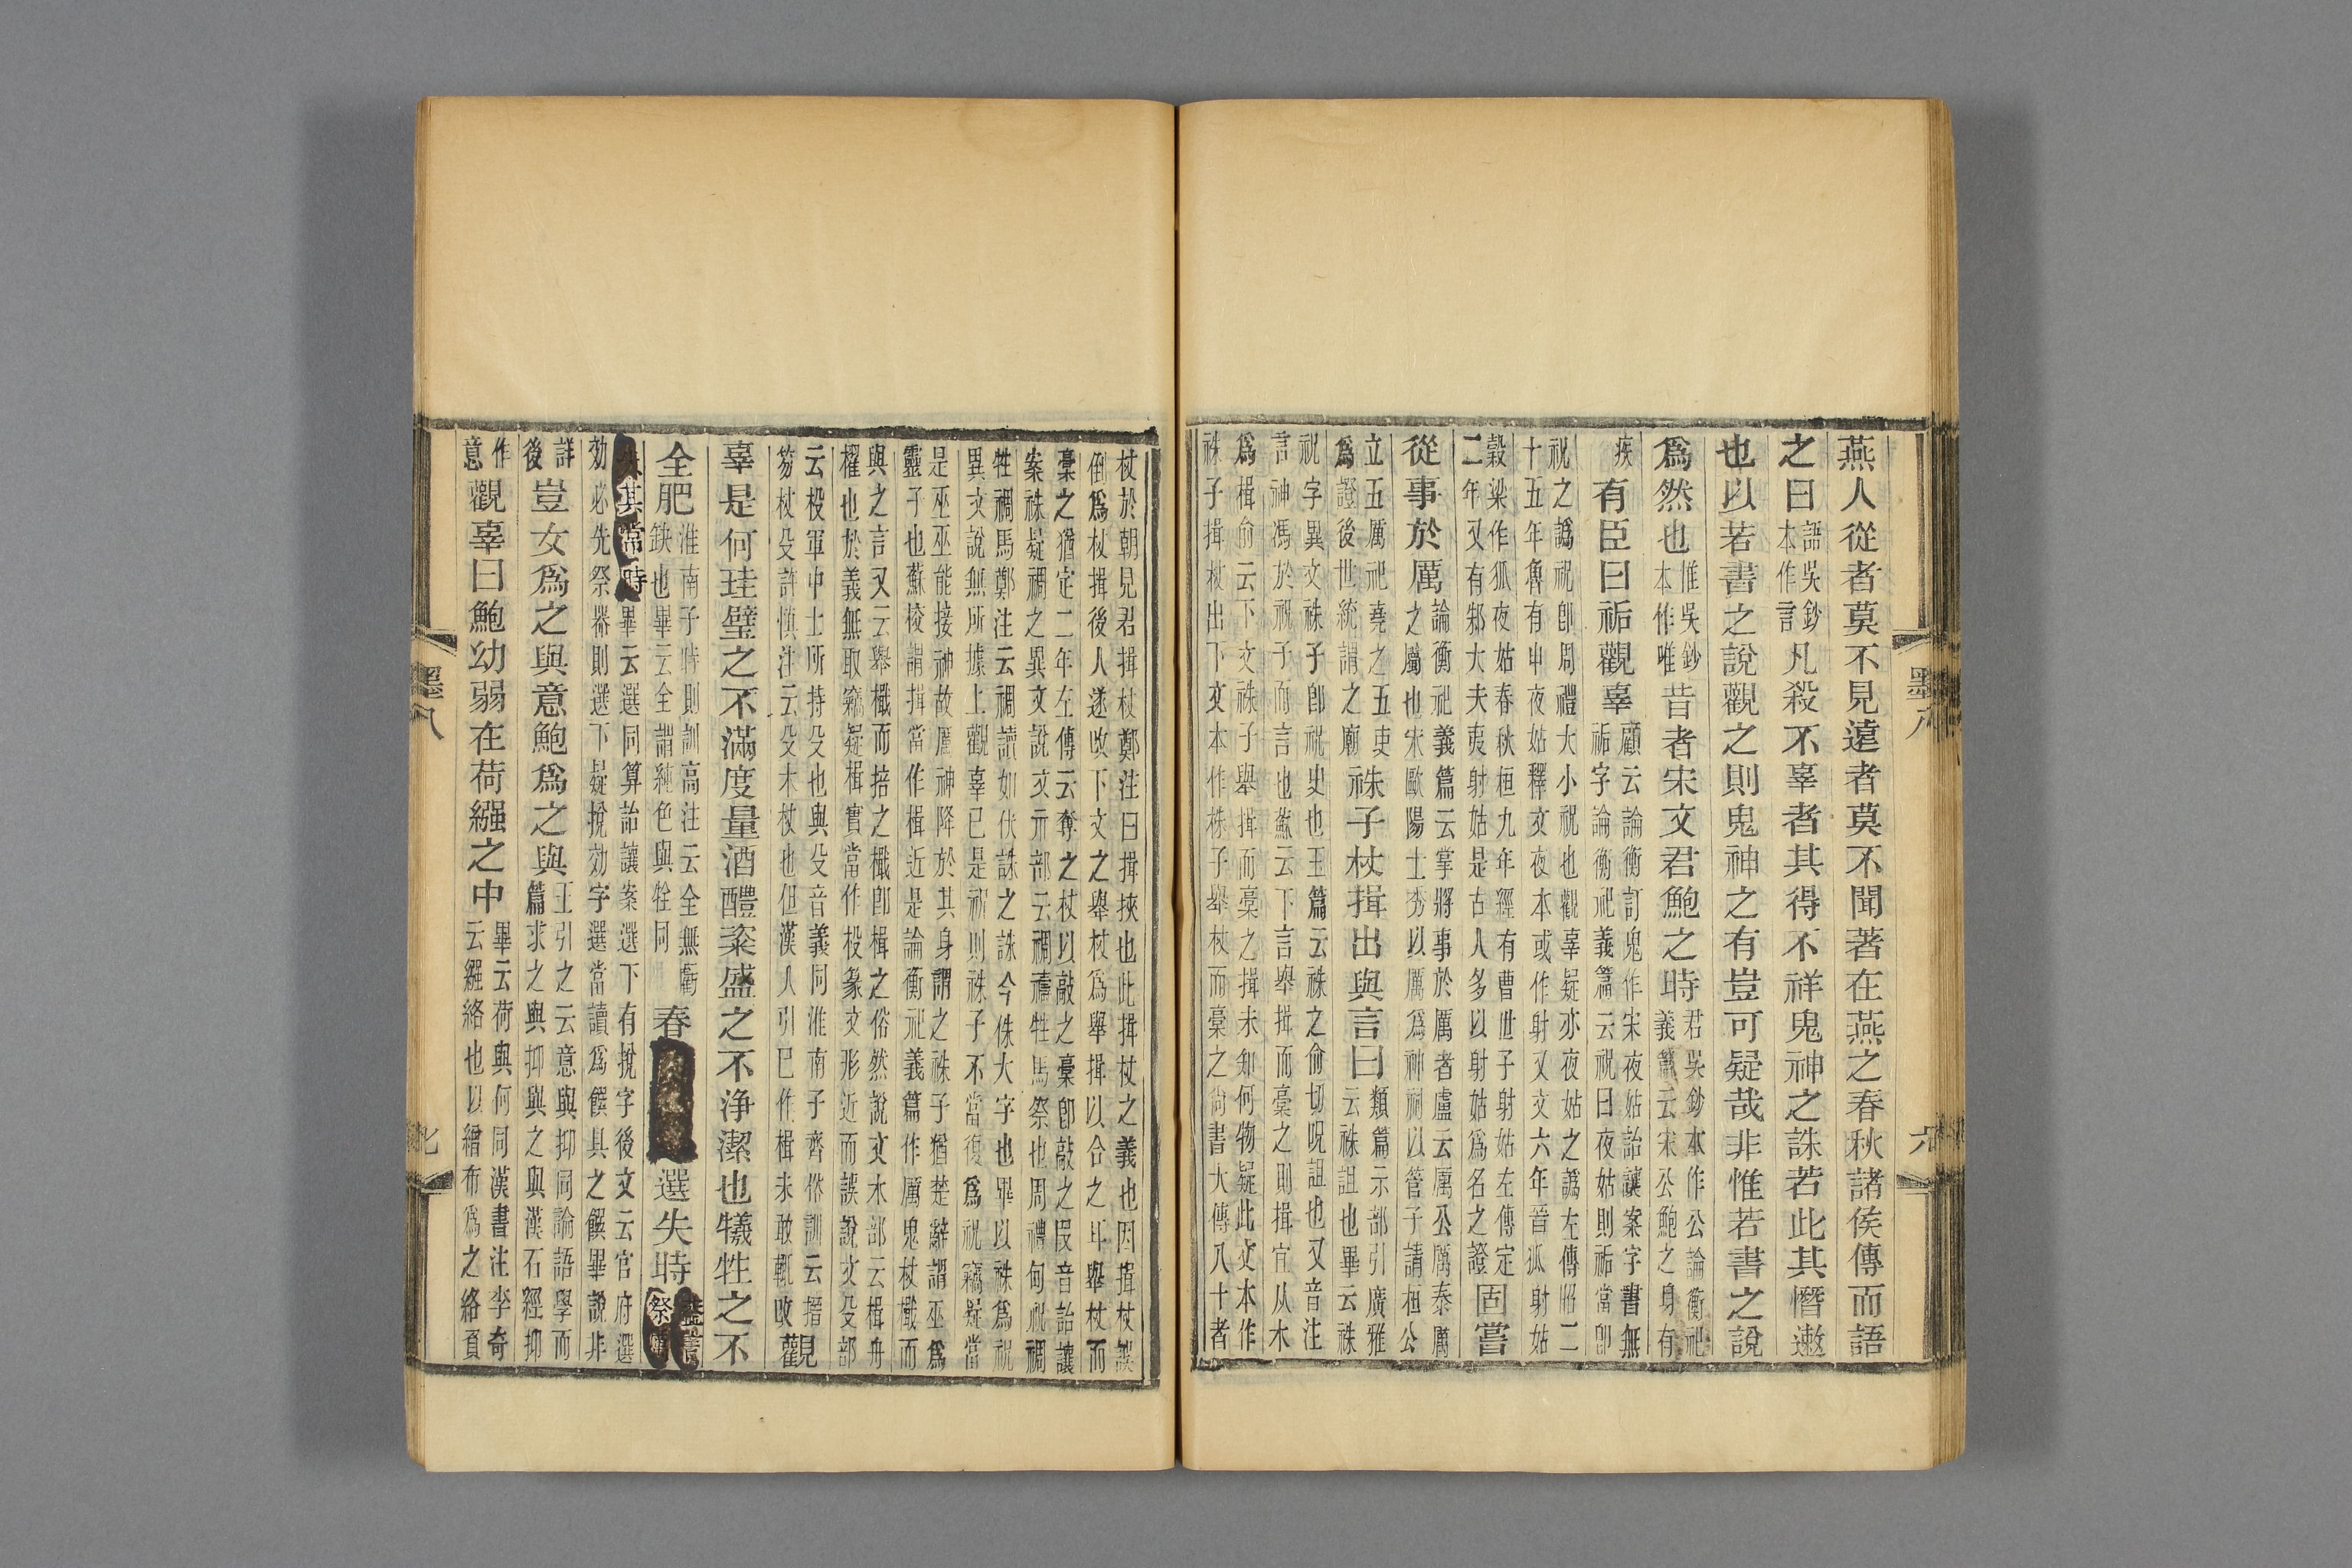 燕人從者莫不見遠者莫不聞著在燕之春秋諸侯傳而語
之曰語吳鈔本作言凡殺不辜者其得不祥鬼神之誅若此其憯遫
也以若書之說觀之則鬼神之有豈可疑哉非惟若書之說
爲然也惟吳鈔本作唯昔者宋文君鮑之時君吳鈔本作公論衡祀義篇云宋公鮑之身有
疾有臣曰䄃觀辜顧云論衡訂鬼作宋夜姑詒讓案字書無䄃字論衡祀義篇云祝曰夜姑則䄃當卽
祝之譌祝卽周禮大小祝也觀辜疑亦夜姑之譌左傳昭二十五年魯有申夜姑釋文夜本或作射又文六年晉狐射姑
穀梁作狐夜姑春秋桓九年經有曹世子射姑左傳定二年又有邾大夫夷射姑是古人多以射姑爲名之證固嘗
從事於厲論衡祀義篇云掌將事於厲者盧云厲公厲泰厲之屬也宋歐陽士秀以厲爲神祠以管子請桓公
立五厲祀堯之五吏爲證後世統謂之廟祩子杖揖出與言曰類篇示部引廣雅云祩詛也畢云祩
祝字異文祩子卽祝史也玉篇云祩之俞切呪詛也又音注言神馮於祝子而言也蘇云下言舉揖而槀之則揖宜从木
爲楫俞云下文祩子舉揖而槀之揖未知何物疑此文本作祩子揖杖出下文本作祩子舉杖而槀之尙書大傳八十者
杖於朝見君揖杖鄭注曰揖挾也此揖杖之義也因揖杖誤倒爲杖揖後人遂改下文之舉杖爲舉揖以合之耳舉杖而
槀之猶定二年左傳云奪之杖以敲之槀卽敲之叚音詒讓案祩疑禂之異文說文示部云禂禱牲馬祭也周禮甸祝禂
牲禂馬鄭注云禂讀如伏誅之誅今侏大字也畢以祩爲祝異文說無所據上觀辜已是祝則祩子不當復爲祝竊疑當
是巫巫能接神故厲神降於其身謂之祩子猶楚辭謂巫爲靈子也蘇校謂揖當作楫近是論衡祀義篇作厲鬼杖檝而
與之言又云舉檝而掊之檝卽楫之俗然說文木部云楫舟櫂也於義無取竊疑楫實當作杸篆文形近而誤說文殳部
云杸軍中士所持殳也與殳音義同淮南子齊俗訓云搢笏杖殳許愼注云殳木杖也但漢人引已作楫未敢輒改觀
辜是何珪璧之不滿度量酒醴粢盛之不淨潔也犧牲之不
全肥淮南子時則訓高注云全無虧缺也畢云全謂純色與牷同春選失時
其常時畢云選同算詒讓案選下有挩字後文云官府選効必先祭器則選下疑挩効字選當讀爲饌具之饌畢說非
詳後豈女爲之與意鮑爲之與王引之云意與抑同論語學而篇求之與抑與之與漢石經抑
作意觀辜曰鮑幼弱在荷繈之中畢云荷與何同漢書注李奇云繈絡也以繒布爲之絡負
墨八
六
墨八
七